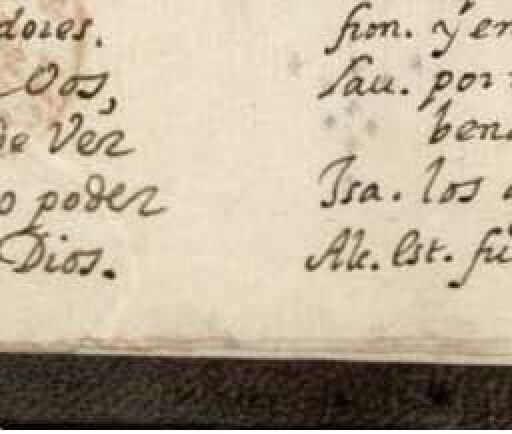 dores.
Vos,
de Ver
o poder
Dios.
fion. y en
Sau. por
ben
Isa. los
Ale. Est. fu